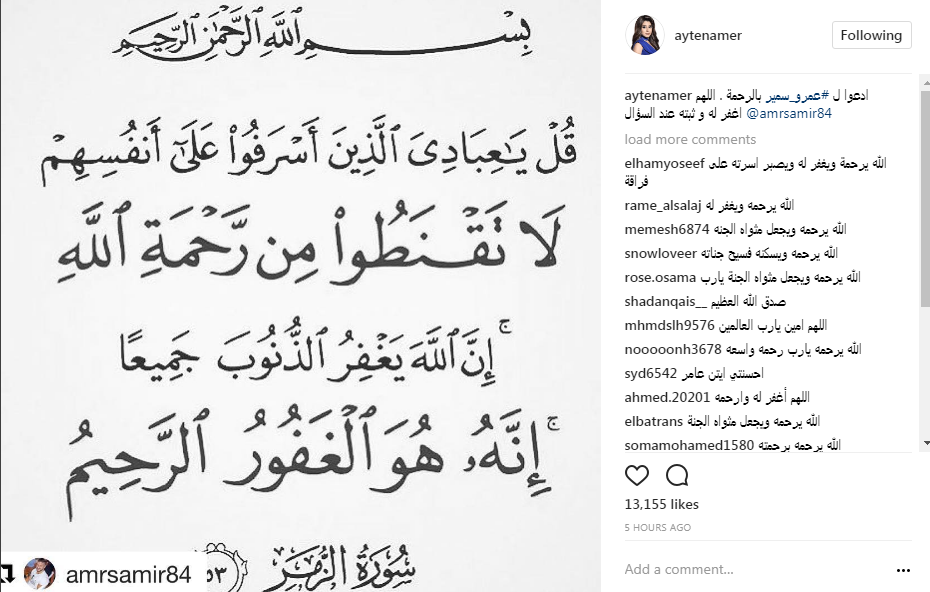 بِسْمِ ٱللَّهِ ٱلرَّحْمَٰنِ ٱلرَّحِيمِ
قُلْ يَٰعِبَادِىَ ٱلَّذِينَ أَسْرَفُوا۟ عَلَىٰٓ أَنفُسِهِمْ
لَا تَقْنَطُوا۟ مِن رَّحْمَةِ ٱللَّهِ
ۚ إِنَّ ٱللَّهَ يَغْفِرُ ٱلذُّنُوبَ جَمِيعًا
ۚ إِنَّهُۥ هُوَ ٱلْغَفُورُ ٱلرَّحِيمُ
سُورَةُ الزُّمَر ٥٣
amrsamir84
aytenamer
Following
aytenamer ادعوا ل #عمرو_سمير بالرحمة . اللهم
اغفر له و ثبته عند السؤال @amrsamir84
load more comments
elhamyoseef الله يرحمة ويغفر له ويصبر اسرته على
فراقة
rame_alsalaj الله يرحمه ويغفر له
memesh6874 الله يرحمه ويجعل مثواه الجنه
snowloveer الله يرحمه ويسكنه فسيح جناته
rose.osama الله يرحمه ويجعل مثواه الجنة يارب
shadanqais__ صدق الله العظيم
mhmdslh9576 اللهم امين يارب العالمين
nooooonh3678 الله يرحمه يارب رحمه واسعه
syd6542 احسنتي ايتن عامر
ahmed.20201 اللهم أغفر له وارحمه
elbatrans الله يرحمه ويجعل مثواه الجنة
somamohamed1580 الله يرحمه برحمته
13,155 likes
5 HOURS AGO
Add a comment...